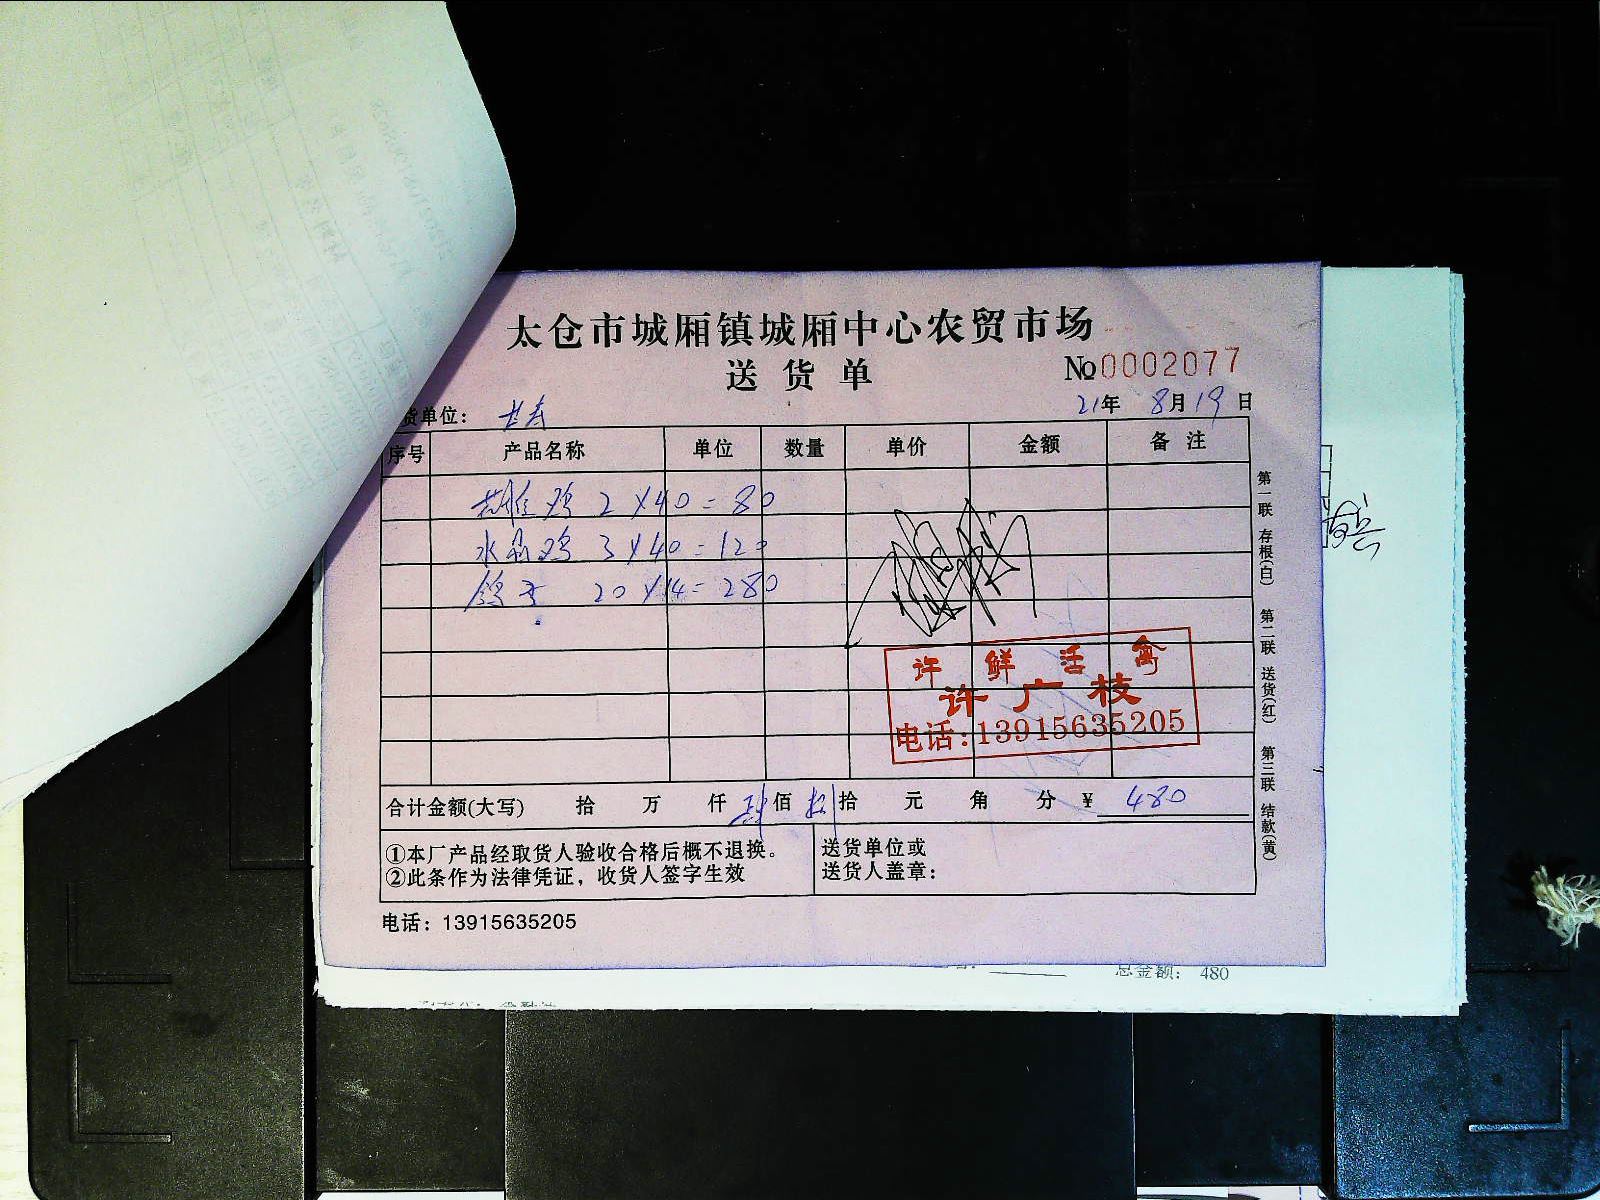 太仓市城厢镇城厢中心农贸市场
送货单
№0002077
货单位：
21年 8月19日
序号 产品名称 单位 数量 单价 金额 备注
鸡 2×40=80
水晶鸡 3×40=120
鸽子 20×14=280
许鲜活禽
许广枝
电话:13915635205
合计金额(大写) 拾 万 仟 肆佰 捌拾 元 角 分 ¥ 480
①本厂产品经取货人验收合格后概不退换。
②此条作为法律凭证，收货人签字生效
送货单位或
送货人盖章：
电话：13915635205
第一联 存根(白) 第二联 送货(红) 第三联 结款(黄)
总金额： 480